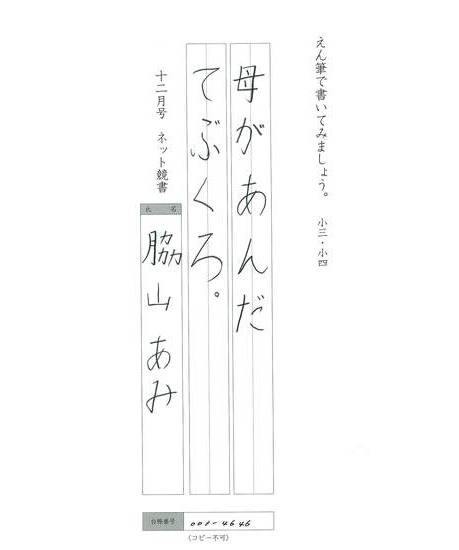 えん筆で書いてみましょう。 小三・小四
母があんだ
てぶくろ。
十二月号 ネット競書
氏 名
脇山あみ
台帳番号 001-4646
(コピー不可)